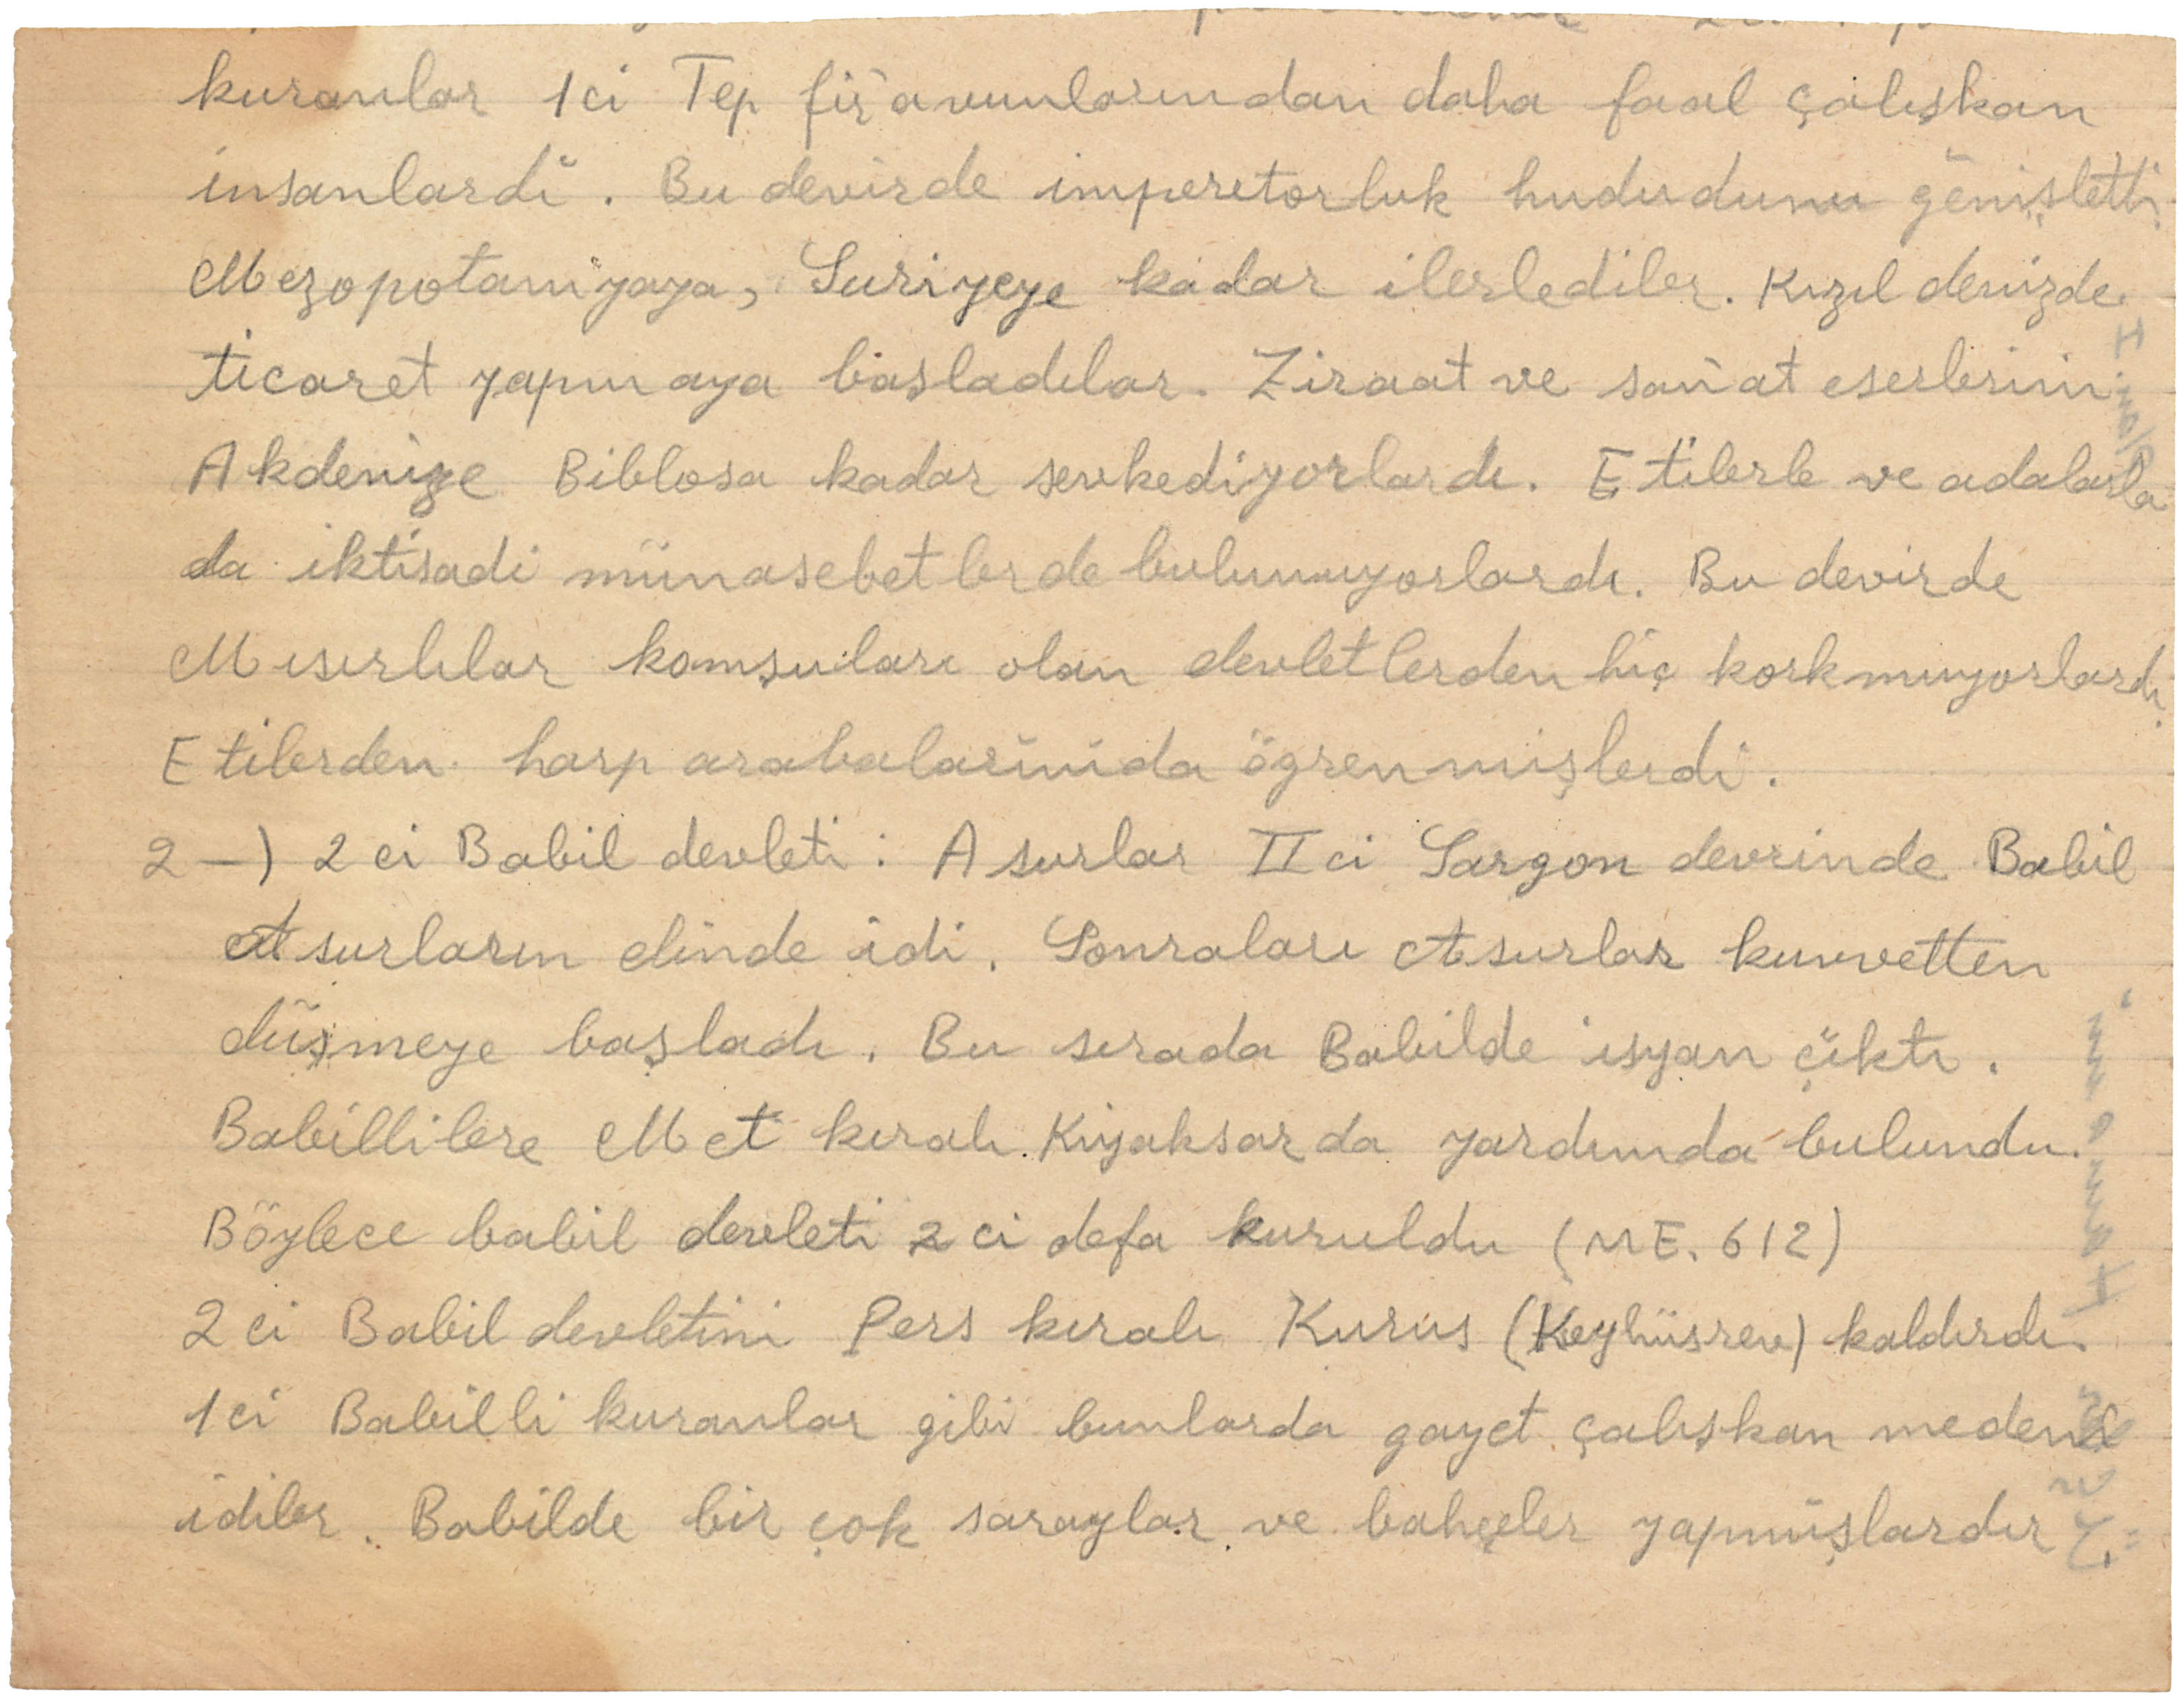 kuranlar 1ci Tep fir'avunlarından daha faal çalışkan
insanlardi. Bu devirde imperetorluk hududunu genişletti
Mezopotamyaya, Suriyeye kadar ilerlediler. Kızıl denizde
ticaret yapmaya başladılar. Ziraat ve san'at eserlerini
Akdenize Biblosa kadar sevkediyorlardı. Etilerle ve adalarla
da iktisadi münasebetlerde bulunuyorlardı. Bu devirde
Mısırlılar komşuları olan devletlerden hiç korkmuyorlardı.
Etilerden harp arabalarinida ögrenmişlerdi.
2-) 2ci Babil devleti: Asurlar II ci Sargon devrinde Babil
Asurların elinde idi. Sonraları Asurlar kuvvetten
düşmeye başladı. Bu sırada Babilde isyan çıktı.
Babillilere Met kıralı Kiyaksar da yardımda bulundu.
Böylece babil devleti 2 ci defa kuruldu (ME. 612)
2ci Babil devletini Pers kıralı Kurus (Keyhüsrev) kaldırdı.
1ci Babilli kuranlar gibi bunlarda gayet çalışkan medeni
idiler. Babilde bir çok saraylar ve bahçeler yapmışlardır